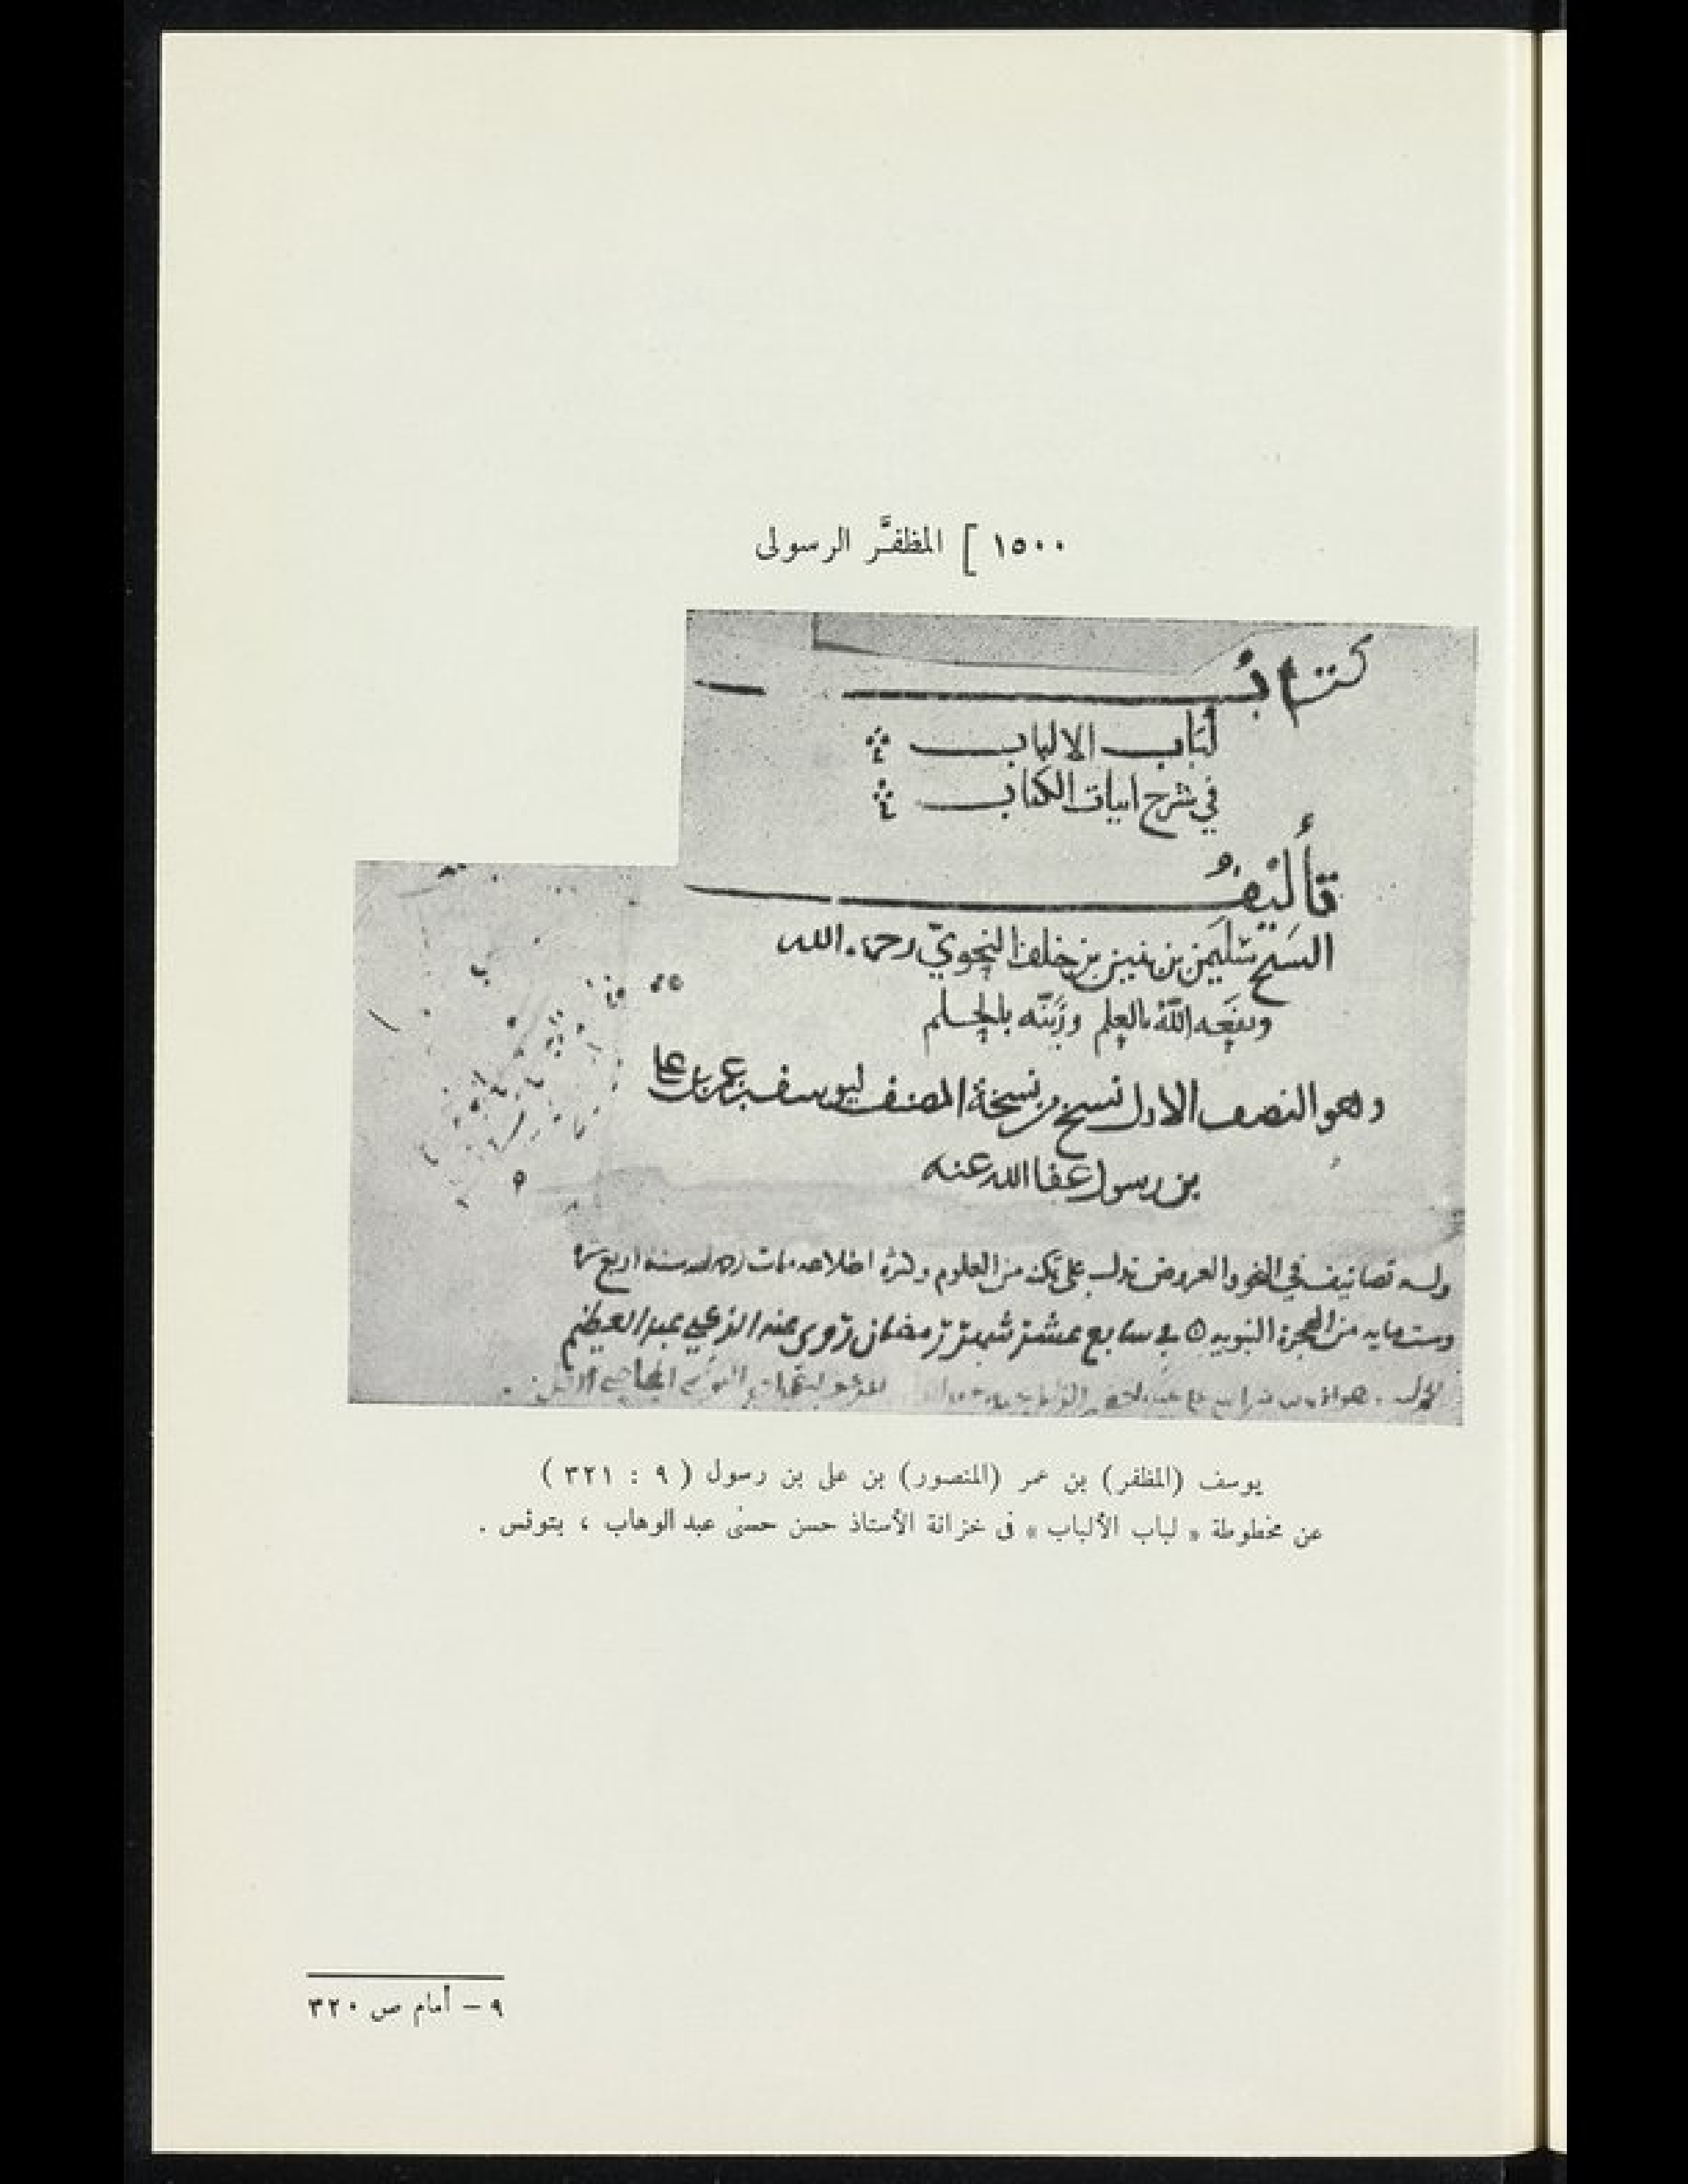 ١٥٠٠ ] المظفَّر الرسولى
كتابُ
لُبَاب الالباب
في شرح ابيات الكتاب
تأليفُ
الشيخ سُليمن بن بنين بن خلف النحويّ رحمه الله
ونفعه اللّه بالعلم وزينّه بالحلم
وهو النصف الاول نسخ من نسخة المصنف ليوسف بن عمر بن علي
بن رسول عفا الله عنه
وله تصانيف في النحو والعروض تدل على تمكنه من العلوم وكثرة اطلاعه مات رحمه الله سنة اربع
وستمايه من الهجرة النبويه في سابع عشر شهر رمضان روى عنه الزكي عبد العظيم
يوسف (المظفر) بن عمر (المنصور) بن على بن رسول ( ٩ : ٣٢١ )
عن مخطوطة « لباب الألباب » فى خزانة الأستاذ حسن حسنى عبد الوهاب ، بتونس .
٩ – أمام ص ٣٢٠